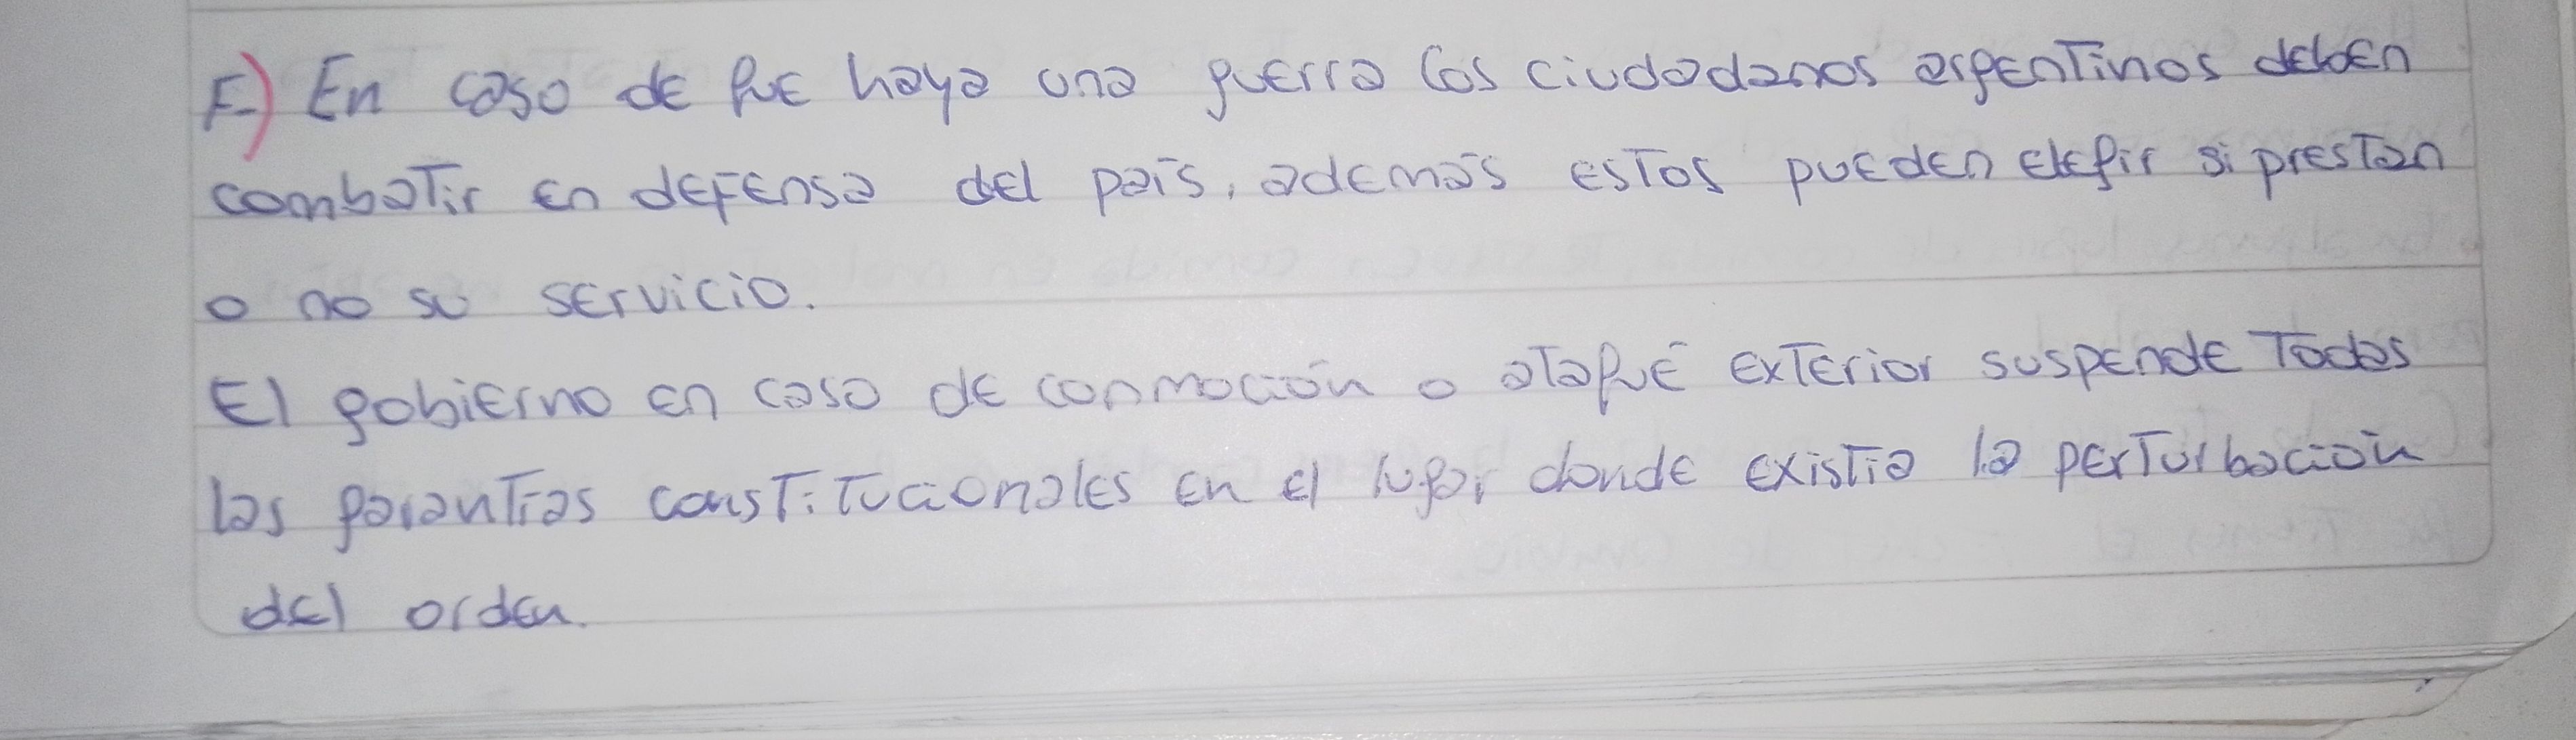 F) En caso de que haya una guerra los ciudadanos argentinos deben
combatir en defensa del país, además estos pueden elegir si prestan
o no su servicio.
El gobierno en caso de conmoción o ataque exterior suspende todas
las garantías constitucionales en el lugar donde existia la perturbación
del orden.